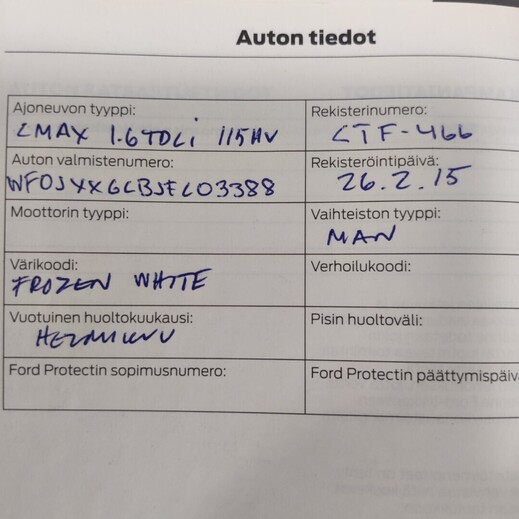 Auton tiedot
Ajoneuvon tyyppi:
CMAX 1.6TDCi 115HV
Rekisterinumero:
CTF-466
Auton valmistenumero:
WF0JXXGCBJEC03388
Rekisteröintipäivä:
26.2.15
Moottorin tyyppi:
Vaihteiston tyyppi:
MAN
Värikoodi:
FROZEN WHITE
Verhoilukoodi:
Vuotuinen huoltokuukausi:
HELMIKUU
Pisin huoltoväli:
Ford Protectin sopimusnumero:
Ford Protectin päättymispäivä